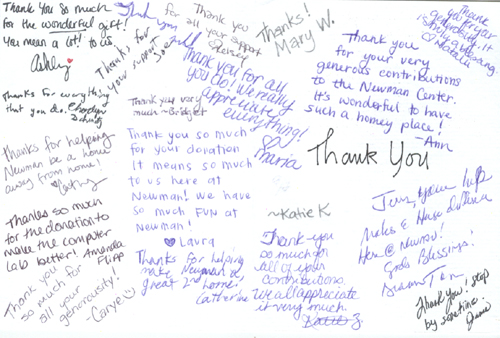 Thank You So much
for the wonderful gift!
You mean a lot! to us
Ashley
Thank you
so much
Thanks for
your support
Joe
Thank you
for all
your support
Thanks!
Mary W.
Thank
you for your
generosity. It
is truly a blessing.
Natalie
Thank you
for your very
generous contributions
to the Newman Center.
It's wonderful to have
such a homey place!
-Ann
Thank you for all
you do! We really
appreciate
everything!
Maria
Thanks for everything
that you do.
Thank you very
much ~Bridget
Thanks for helping
Newman be a home
away from home!
Cathy
Thank you so much
for your donation
It means so much
to us here at
Newman! We have
so much fun at
Newman!
Laura
Thank You
~Katie K
Thanks so much
for the donation to
make the computer
lab better! Amanda
Flipp
Thank you
so much for
all your
generosity!
Carye
Thanks for helping
make Newman a
great 2nd home!
Catherine
Thank you
so much for
all of your
contributions.
We all appreciate
it very much
Katie Z.
your help
Makes a
Here @ Newman!
God's Blessings!
Thank you, stop
by sometime
Jamie